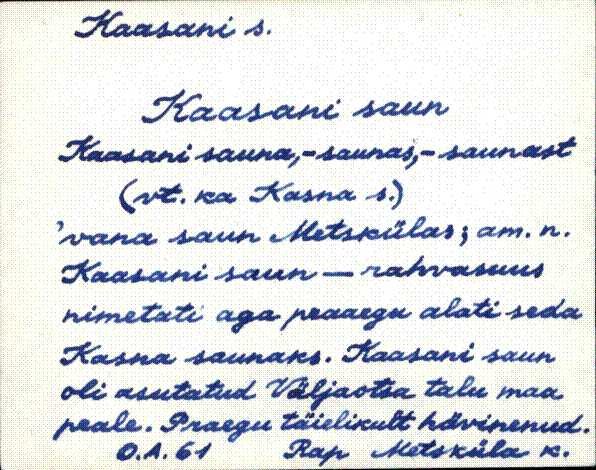 Kaasani s.
Kaasani saun
Kaasani sauna,-saunas,-saunast
(vt. ka Kasna s.)
'vana saun Metskülas; am. n.
Kaasani saun — rahvasuus
nimetati aga praaegu alati seda
Kasna saunaks. Kaasani saun
oli asutatud Väljaotsa talu maa
peale. Praegu täielikult hävinenud.
O.A. 61 Rap Metsküla k.